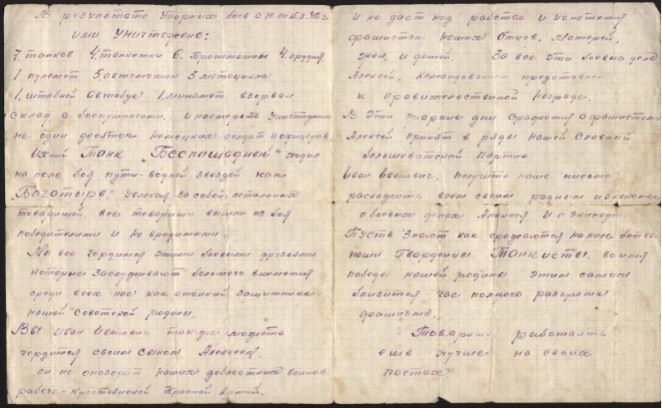 В результате упорных боев с п. по 8
ими уничтожено:
7. танков 4. танкетки 6. бронемашин 4. орудия
1 пулемет 5 автомашин 3 мотоцикла
1. штабной автобус 1. миномет взорван
склад с боеприпасами. и последеть уничтожено
не один десяток немецких солдат и офицеров
Ихний Танк „Беспощадный" ходил
на поле боя путиводной звездой как
Богатырь, увлекая за собой, остальных
товарищей. Все товарищи вышли из боя
победителями и не вредимыми.
Мы все гордимся этими боевыми друзьями
которые заслуживают большого внимания
среди всех нас как стойкий защитников
нашей Советской родины.
Вы Иван Иванович также можете
гордится своим сыном Алексеем.
он не опозорит наших доблестных воинов
рабоче-крестьянской Красной Армии.
и не даст под рабство и угнетения
фашистам наших Отцов. Матерей,
жен, и детей. За все эти боевые дела
Алексей. Командованием представлен
к правительственной награде.
В эти жаркие дни сражения с фашистами
Алексей принят в ряды нашей славной
большевитской Партии
Иван Иванович. получите наше письмо
расскажите всем своим родным и знакомым
о боевых делах Алексея и о экипаже.
Пусть знают как сражаются наши
Гвардейцы Танкисты. во имя
победы нашей родины этим самым
близится час полного разгрома
фашизма.
Товарищи работайте
еще лучше на своих
постах